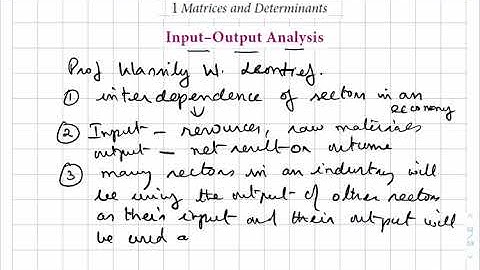 1 Matrices and Determinants
Input–Output Analysis
Prof Wassily W. Leontief.
① interdependence of sectors in an
economy
② Input – resources, raw materials
output – net result or outcome
③ many sectors in an industry will
be using the output of other sectors
as their input and their output will
be used a